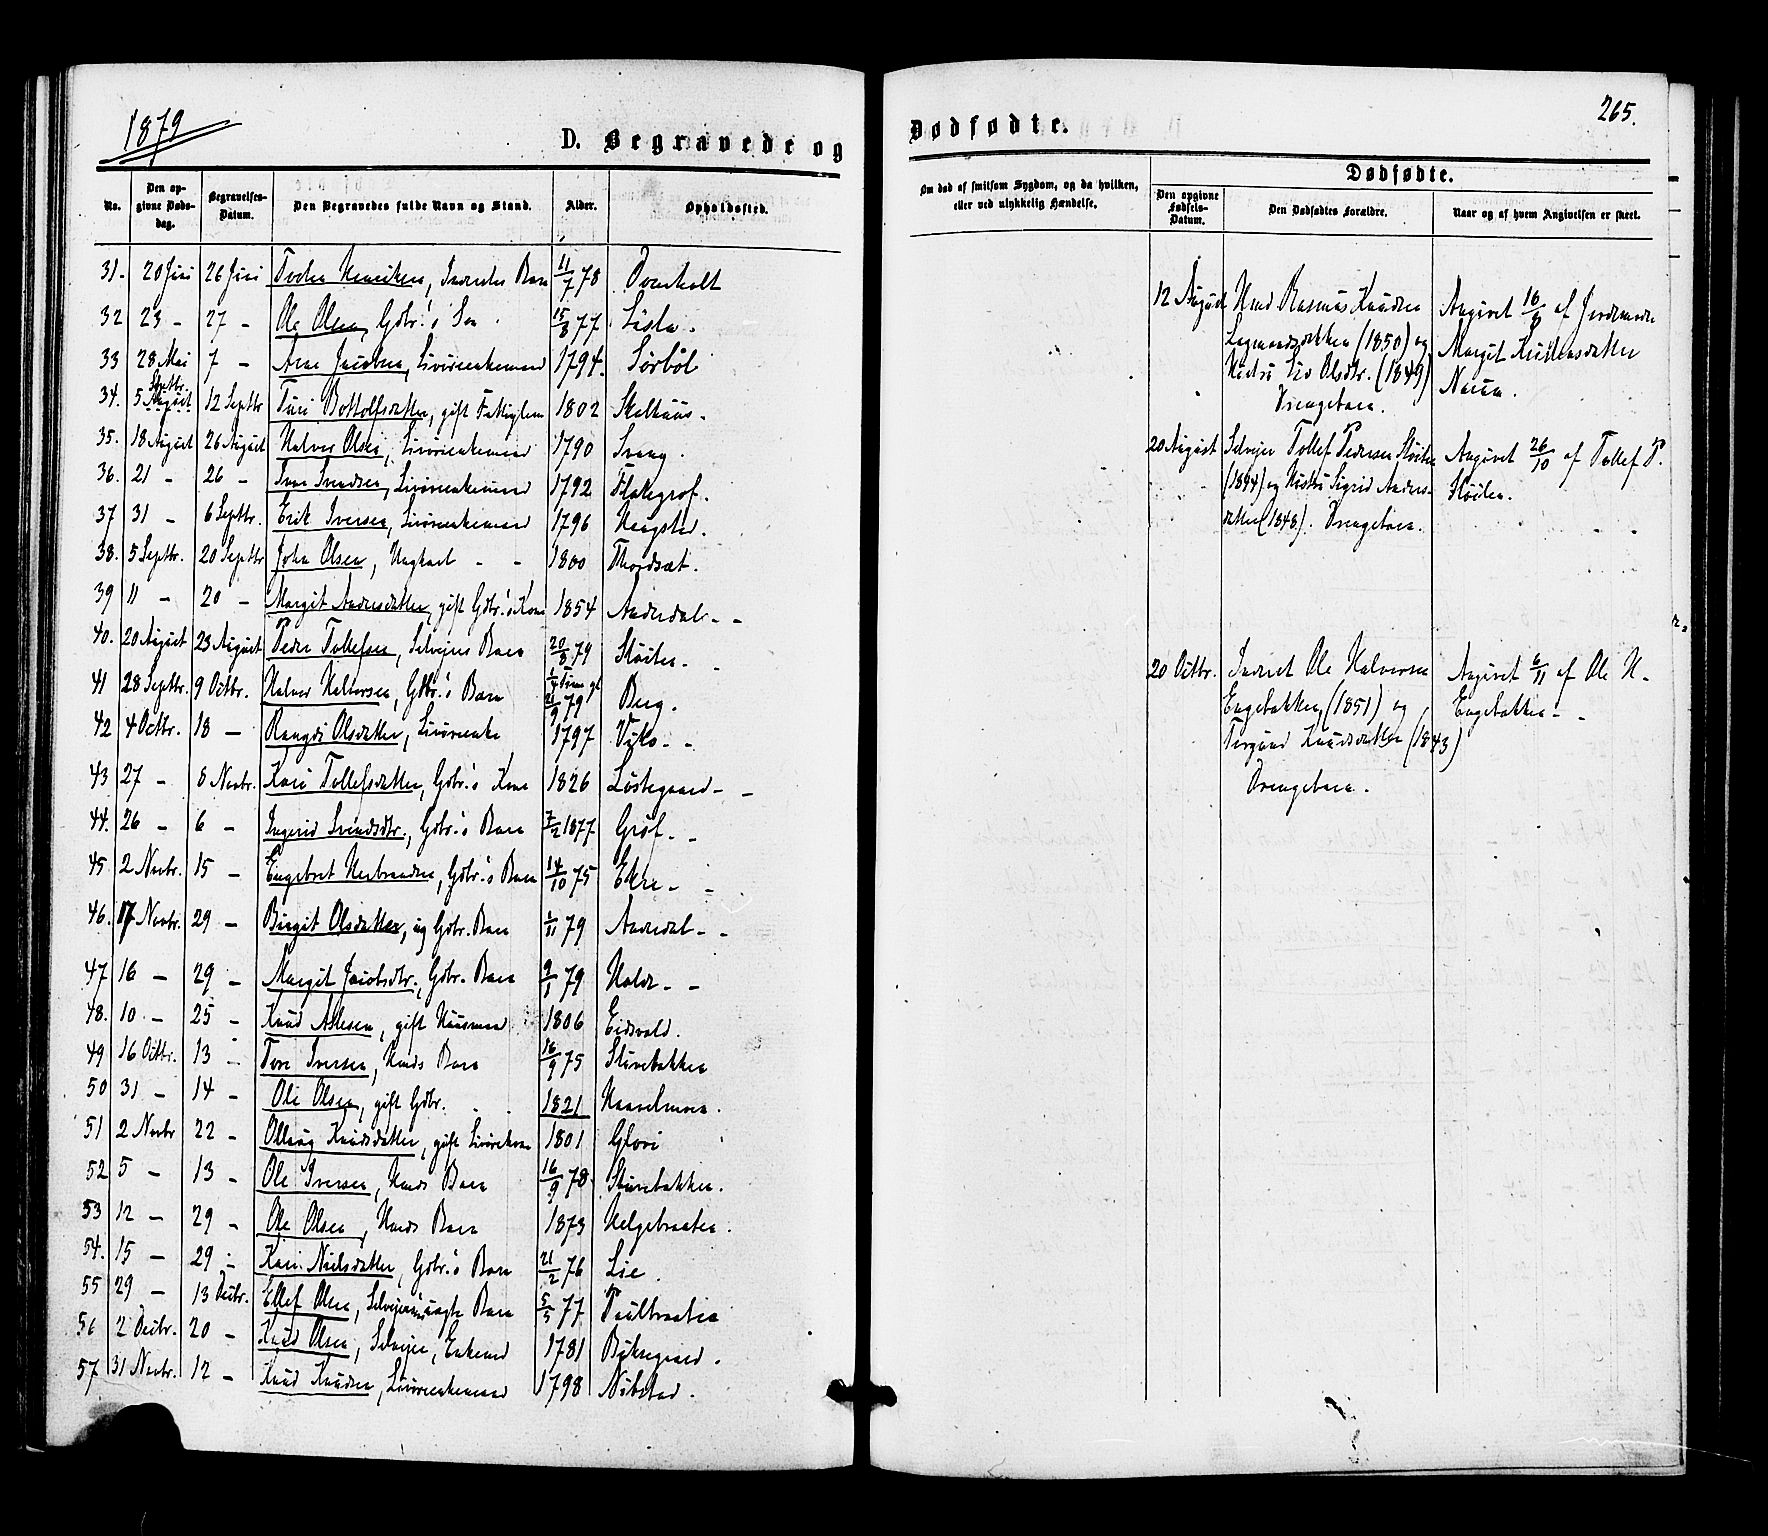 1879
265.
D. Begravede og Dødfødte.
No. | Den opgivne Dødsdag. | Begravelses-Datum. | Den Begravedes fulde Navn og Stand. | Alder. | Opholdssted.
31. | 20 Juni | 26 Juni | Henriksen, Barn | 11/7 78
32 | 23 - | 27 - | Ole Olsen, Gdbr.'s Søn | 15/8 77
33 | 28 Mai | 7 - | Arne Jacobsen, Livøreenkemand | 1794. | Sørbøl
34. | 5 Septbr. August | 12 Septbr | Turi Bottolfsdatter, gift Fattiglem | 1802 | Skalhuus.
35. | 18 August | 26 August | Halvor Olsen, Livøreenkemand | 1790 | Svang.
36. | 21 - | 26 - | Svendsen, Livøreenkemand | 1792
37 | 31 - | 6 Septbr. | Erik Iversen, Livøreenkemand | 1796 | Haugstad.
38. | 5 Septbr. | 20 Septbr | John Olsen, Ungkarl - - | 1800 | Thordsæt.
39 | 11 - | 20 - | Margit Andersdatter, gift Gdbr.'s Kone | 1854 - -
40. | 20 August | 23 August | Peder Tollefsen, Selveiers Barn | 20/8 79 | Støiten. -
41 | 28 Septbr. | 9 Octbr. | Halvor Halvorsen, Gdbr.'s Barn | 79 | Berg.
42 | 4 Octbr. | 18 - | Rangdi Olsdatter, Livøreenke | 1797 | Viko - -
43 | 27 - | 8 Novbr. | Kari Tollefsdatter, Gdbr.'s Kone | 1826 | Løstegaard - -
44. | 26 - | 6 - | Ingerid Svendsdtr., Gdbr.'s Barn | 7/2 1877 | Grøf - -
45 | 2 Novbr. | 15 - | Engebret Herbrandsen, Gdbr.'s Barn | 14/10 75 | Ekre - -
46. | 17 Novbr. | 29 - | Birgit Olsdatter, ug Gdbr. Barn | 1/11 79 - -
47 | 16 - | 29 - | Margit Jacobsdtr., Gdbr. Barn | 9/1 79 - -
48. | 10. - | 25 - | Knud Aslesen, gift Huusmand | 1806 | Eidsvold.
49 | 16 Octbr. | 13 - | Tore Iversen, Hmds Barn | 16/9 75 | Sturebakken
50 | 31 - | 14 - | Ole Olsen, gift Gdbr. | 1821
51 | 2 Novbr | 22 - | Ollaug Knudsdatter, gift Livørekone | 1801 | Glovi
52 | 5 - | 13 - | Ole Iversen, Hmds Barn | 16/9 78. | Sturebakken.
53 | 12 - | 29 - | Ole Olsen, Hmds Barn | 1873 | Helgebraaten.
54. | 15 - | 29 - | Kari Nielsdatter, Gdbr.'s Barn | 21/2 76 | Lie.
55 | 29 - | 13 Decbr. | Ellef Olsen, uægte Barn | 5/5 77 | Paulbraaten
56 | 2 Decbr. | 20 - | Knud Olsen, Selveier, Enkemand | 1781
57 | 31 Novbr. | 12 - | Knud Knudsen, Livøreenkemand | 1798 | Nibstad.
Om død af smitsom Sygdom, og da hvilken, eller ved ulykkelig Hændelse.
Dødfødte.
Den opgivne Fødsels-Datum. | Den Dødfødtes Forældre. | Naar og af hvem Angivelsen er skeet.
12 August | Hmd Rasmus Knudsen | Angivet 16/8 af Jordemoder
Lagmandsbakken (1850) og | Margit Kristensdatter
Hustru Liv Olsdtr. (1849)
Drengebarn.
20 August | Selveier Tollef Pedersen Støiten | Angivet 26/10 af Tollef P.
(1844) og Hustru Sigrid Anders- | Støiten.
datter (1848). Drengebarn.
20 Octbr. | Inderst Ole Halvorsen | Angivet 6/11 af Ole H.
Engebakken, (1851) og | Engebakken - -
Torgund Knudsdatter (1843)
Drengebarn.